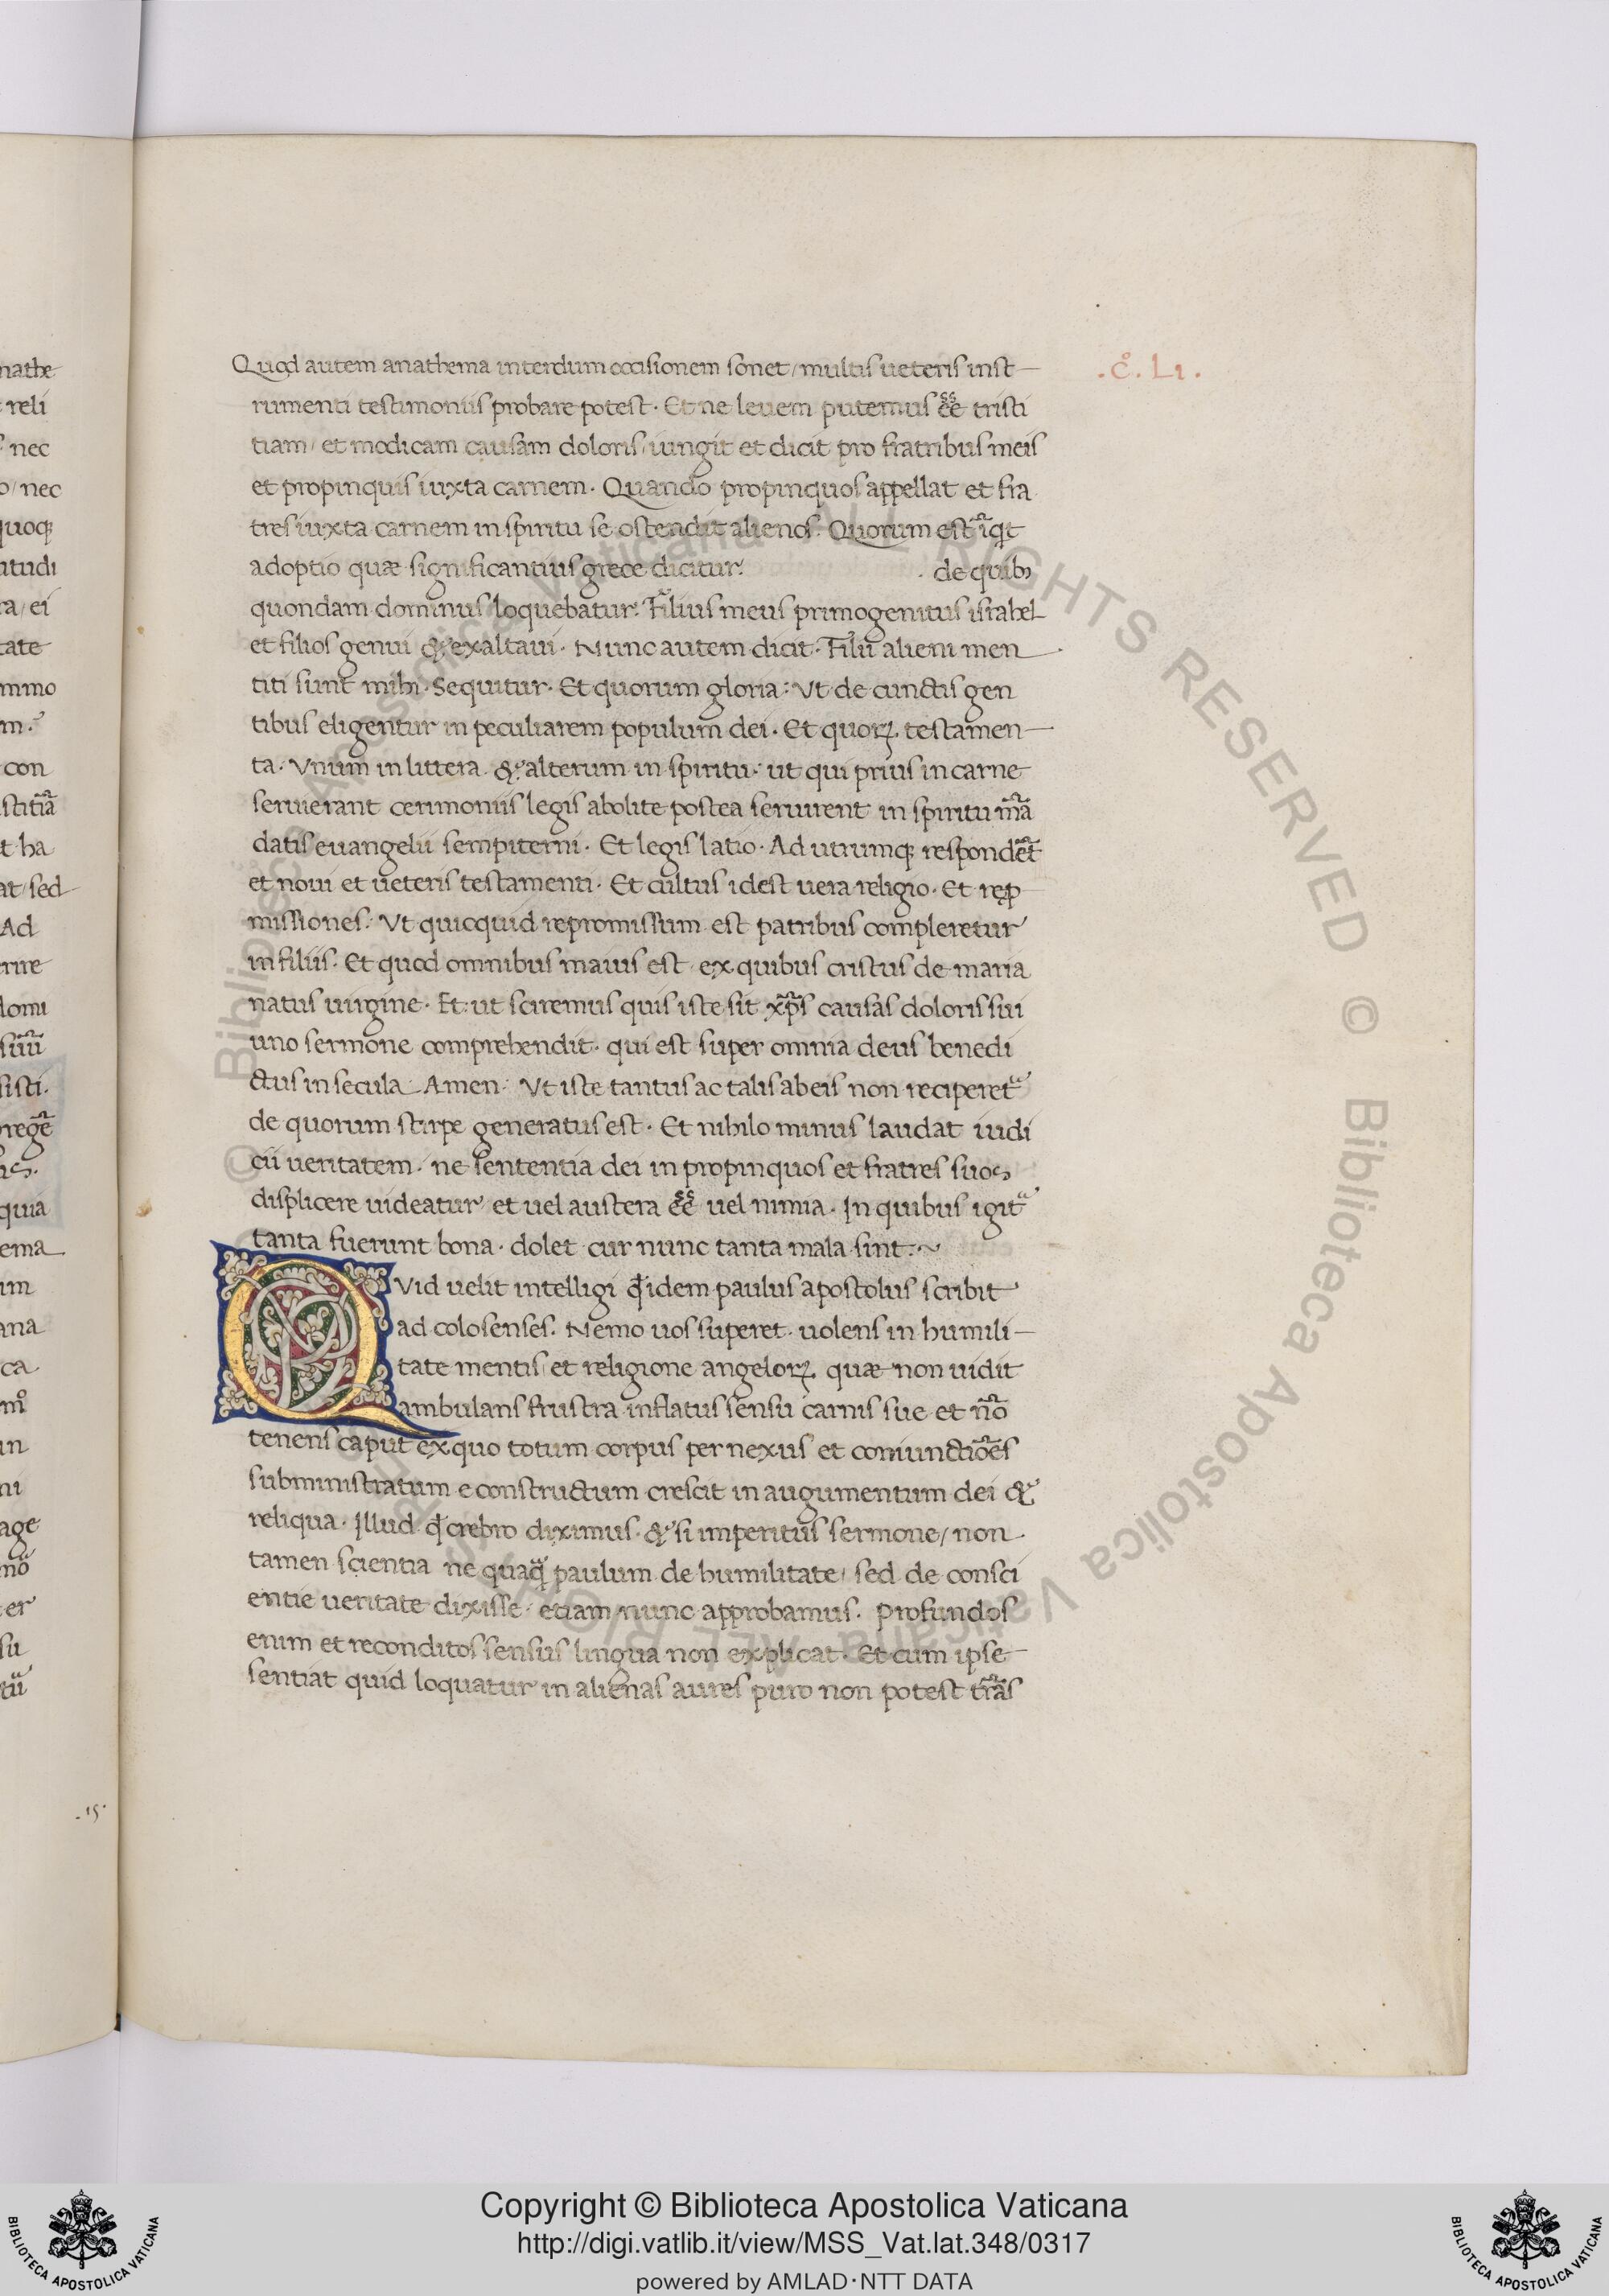 Quod autem anathema interdum occisionem sonet / multis ueteris inst
rumenti testimoniis probare potest · Et ne leuem putemus ee͂ tristi
tiam / et modicam causam doloris / iungit et dicit pro fratribus meis
et propinquis iuxta carnem · Quando propinquos appellat et fra
tres iuxta carnem in spiritu se ostendit alienos. Quorum est īqt
adoptio quæ significantius grece dicitur. de quibȝ
quondam dominus loquebatur. Filius meus primogenitus israhel
et filios genui & exaltaui · Nunc autem dicit · Filii alieni men
titi sunt mihi · Sequitur · Et quorum gloria : Vt de cunctis gen
tibus eligentur in peculiarem populum dei · Et quorꝝ testamen
ta · Vnum in littera & alterum in spiritu · ut qui prius in carne
seruierant cerimoniis legis abolite postea seruirent in spiritu mā
datis euangelii sempiterni · Et legis latio · Ad utrumqꝫ respondēt
et noui et ueteris testamenti · Et cultus idest uera religio · Et rep
missiones : Vt quicquid repromissum est patribus compleretur
in filiis · Et quod omnibus maius est ex quibus cristus de maria
natus uirgine · Et ut sciremus quis iste sit xp̄s causas doloris sui
uno sermone comprehendit · qui est super omnia deus benedi
ctus in secula Amen · Vt iste tantus ac talis ab eis non reciperet᷑
de quorum stirpe generatus est · Et nihilo minus laudat iudi
cii ueritatem · ne sententia dei in propinquos et fratres suos
displicere uideatur et uel austera ee͂ uel nimia · In quibus igit᷑
tanta fuerunt bona · dolet cur nunc tanta mala sint : ~
QVid uelit intelligi qd̄ idem paulus apostolus scribit
ad colosenses. Nemo uos superet · uolens in humili
tate mentis et religione angelorꝝ quæ non uidit
ambulans frustra inflatus sensu carnis sue et nō
tenens caput ex quo totum corpus per nexus et coniunctiōes
subministratum e constructum crescit in augumentum dei &
reliqua · Illud qd̄ crebro diximus · & si imperitus sermone / non
tamen scientia ne quaq̄ paulum de humilitate / sed de consci
entie ueritate dixisse · etiam nunc approbamus · Profundos
enim et reconditos sensus lingua non explicat · Et cum ipse
sentiat quid loquatur in alienas aures puro non potest trās
· C̊ · LI ·
nathe
reli
nec
o / nec
quoqꝫ
itudi
ra / ei
tate
mmo
m ·
con
stitiā
t ha
at / sed
Ad
rire
domi
sisti ·
quia
ema
im
ana
ca
in
ni
age
nō
er
su
· 15 ·
Copyright © Biblioteca Apostolica Vaticana
http://digi.vatlib.it/view/MSS_Vat.lat.348/0317
powered by AMLAD · NTT DATA
BIBLIOTECA APOSTOLICA VATICANA
BIBLIOTECA APOSTOLICA VATICANA
© Biblioteca Apostolica Vaticana ALL RIGHTS RESERVED © Biblioteca Apostolica Vaticana ALL RIGHTS RESERVED